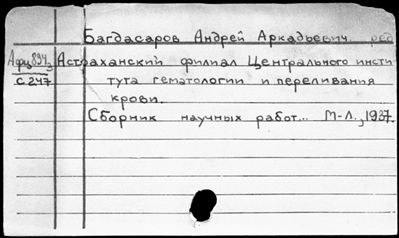 Багдасаров Андрей Аркадьевич, ред
Астраханский филиал Центрального инсти
тута гематологии и переливания
крови.
Сборник научных работ... М-Л., 1937.
С247